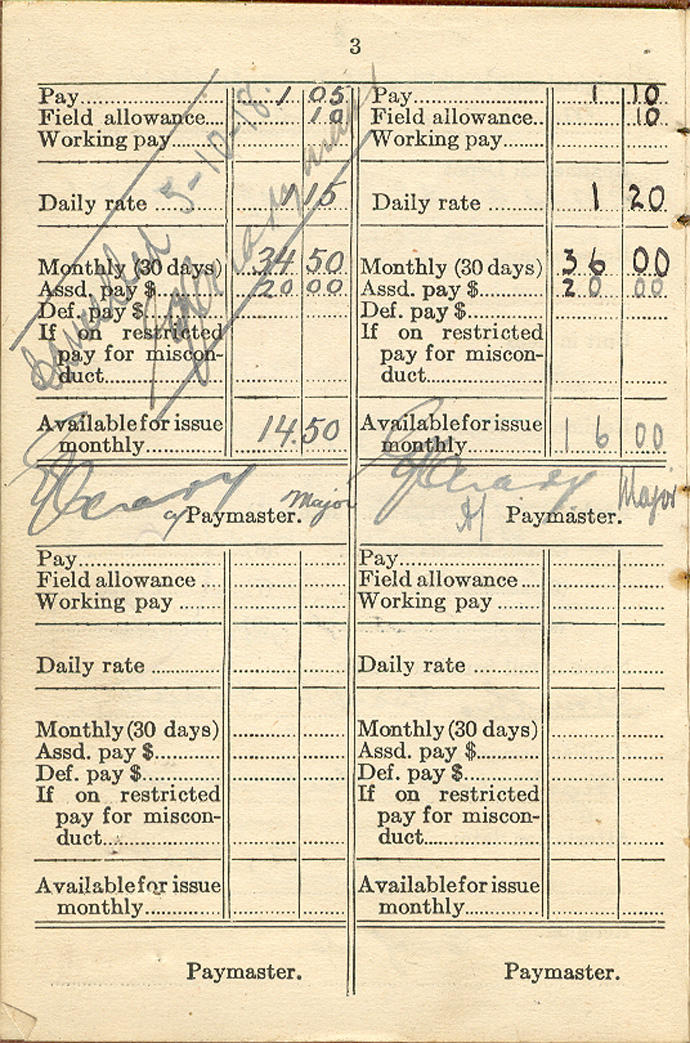 3
Pay 1 05
Field allowance 10
Working pay
Daily rate 1 15
Monthly (30 days) 34 50
Assd. pay $ 20 00
Def. pay $
If on restricted
pay for miscon-
duct
Available for issue
monthly 14.50
Paymaster. Major
Cancelled 3-10-18.
Pay 1 10
Field allowance 10
Working pay
Daily rate 1 20
Monthly (30 days) 36 00
Assd. pay $ 20 00
Def. pay $
If on restricted
pay for miscon-
duct
Available for issue
monthly 16 00
Paymaster. Major
Pay
Field allowance
Working pay
Daily rate
Monthly (30 days)
Assd. pay $
Def. pay $
If on restricted
pay for miscon-
duct
Available for issue
monthly
Paymaster.
Pay
Field allowance
Working pay
Daily rate
Monthly (30 days)
Assd. pay $
Def. pay $
If on restricted
pay for miscon-
duct
Available for issue
monthly
Paymaster.